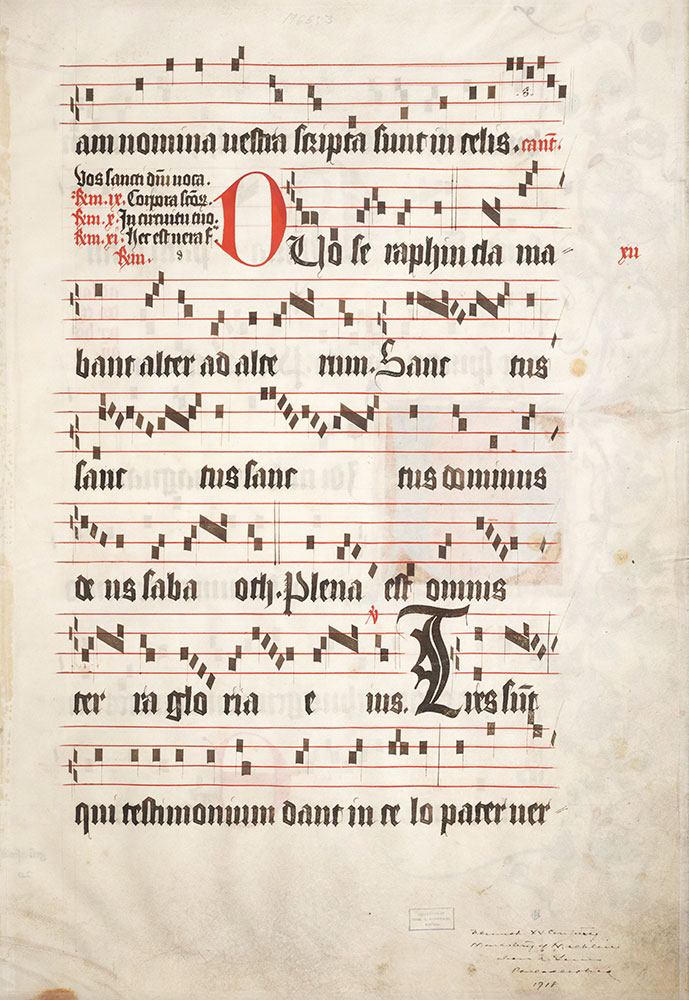 M6553
am nomina vestra scripta sunt in celis. cant.
Vos sancti dni voca.
Rem. ix. Corpora scõꝝ.
Rem. x. In circuitu tuo.
Rem. xi. Hec est vera f
Rem. 9
DUo se raphin cla ma xii
bant alter ad alte rum. Sanc tus
sanc tus sanc tus dominus
de us saba oth. Plena est omnis
v
ter ra glo ria e ius. Tres sũt
qui testimonium dant in ce lo pater ver
Flemish XV Century
Monastery of Mechlin
1918